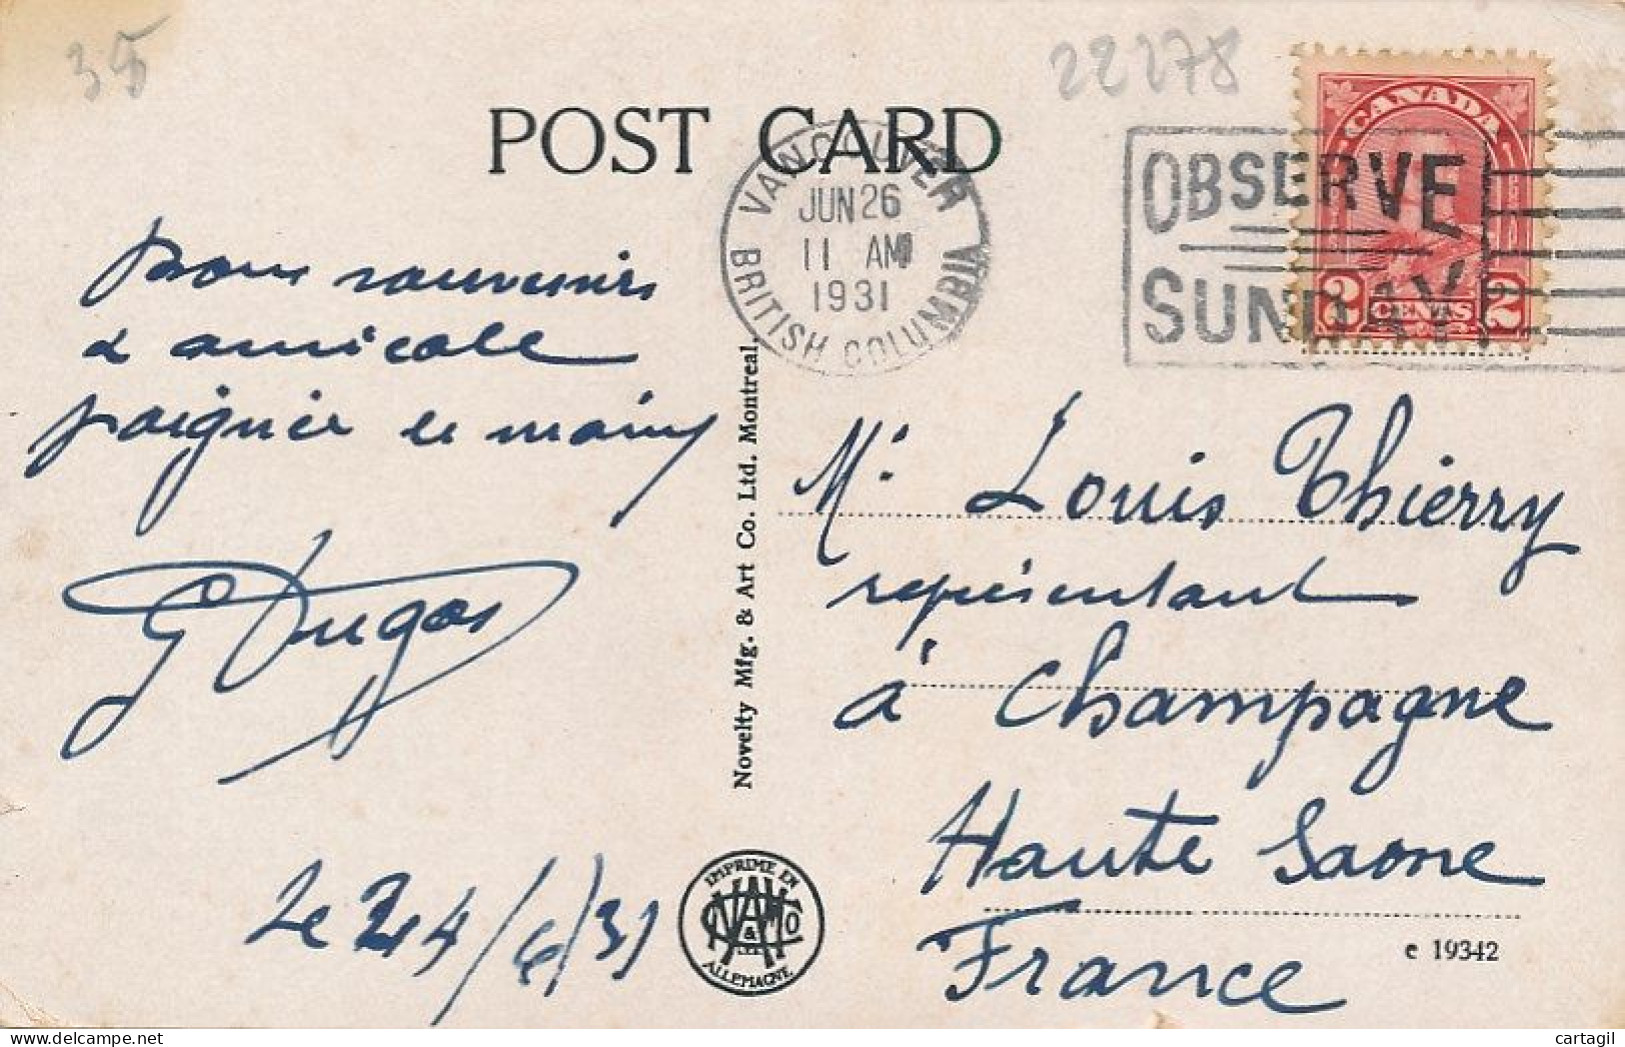 35
22278
POST CARD
CANADA
2 CENTS 2
VANCOUVER
JUN 26
11 AM
1931
BRITISH COLUMBIA
OBSERVE
SUNDAY
Bons souvenirs
& amicale
poignée de mains
G Dugas
Le 24/6/31
Novelty Mfg. & Art Co. Ltd. Montreal.
IMPRIME EN
ALLEMAGNE
Mr. Louis Thierry
représentant
à Champagne
Haute Saone
France
e 19342
cartagil